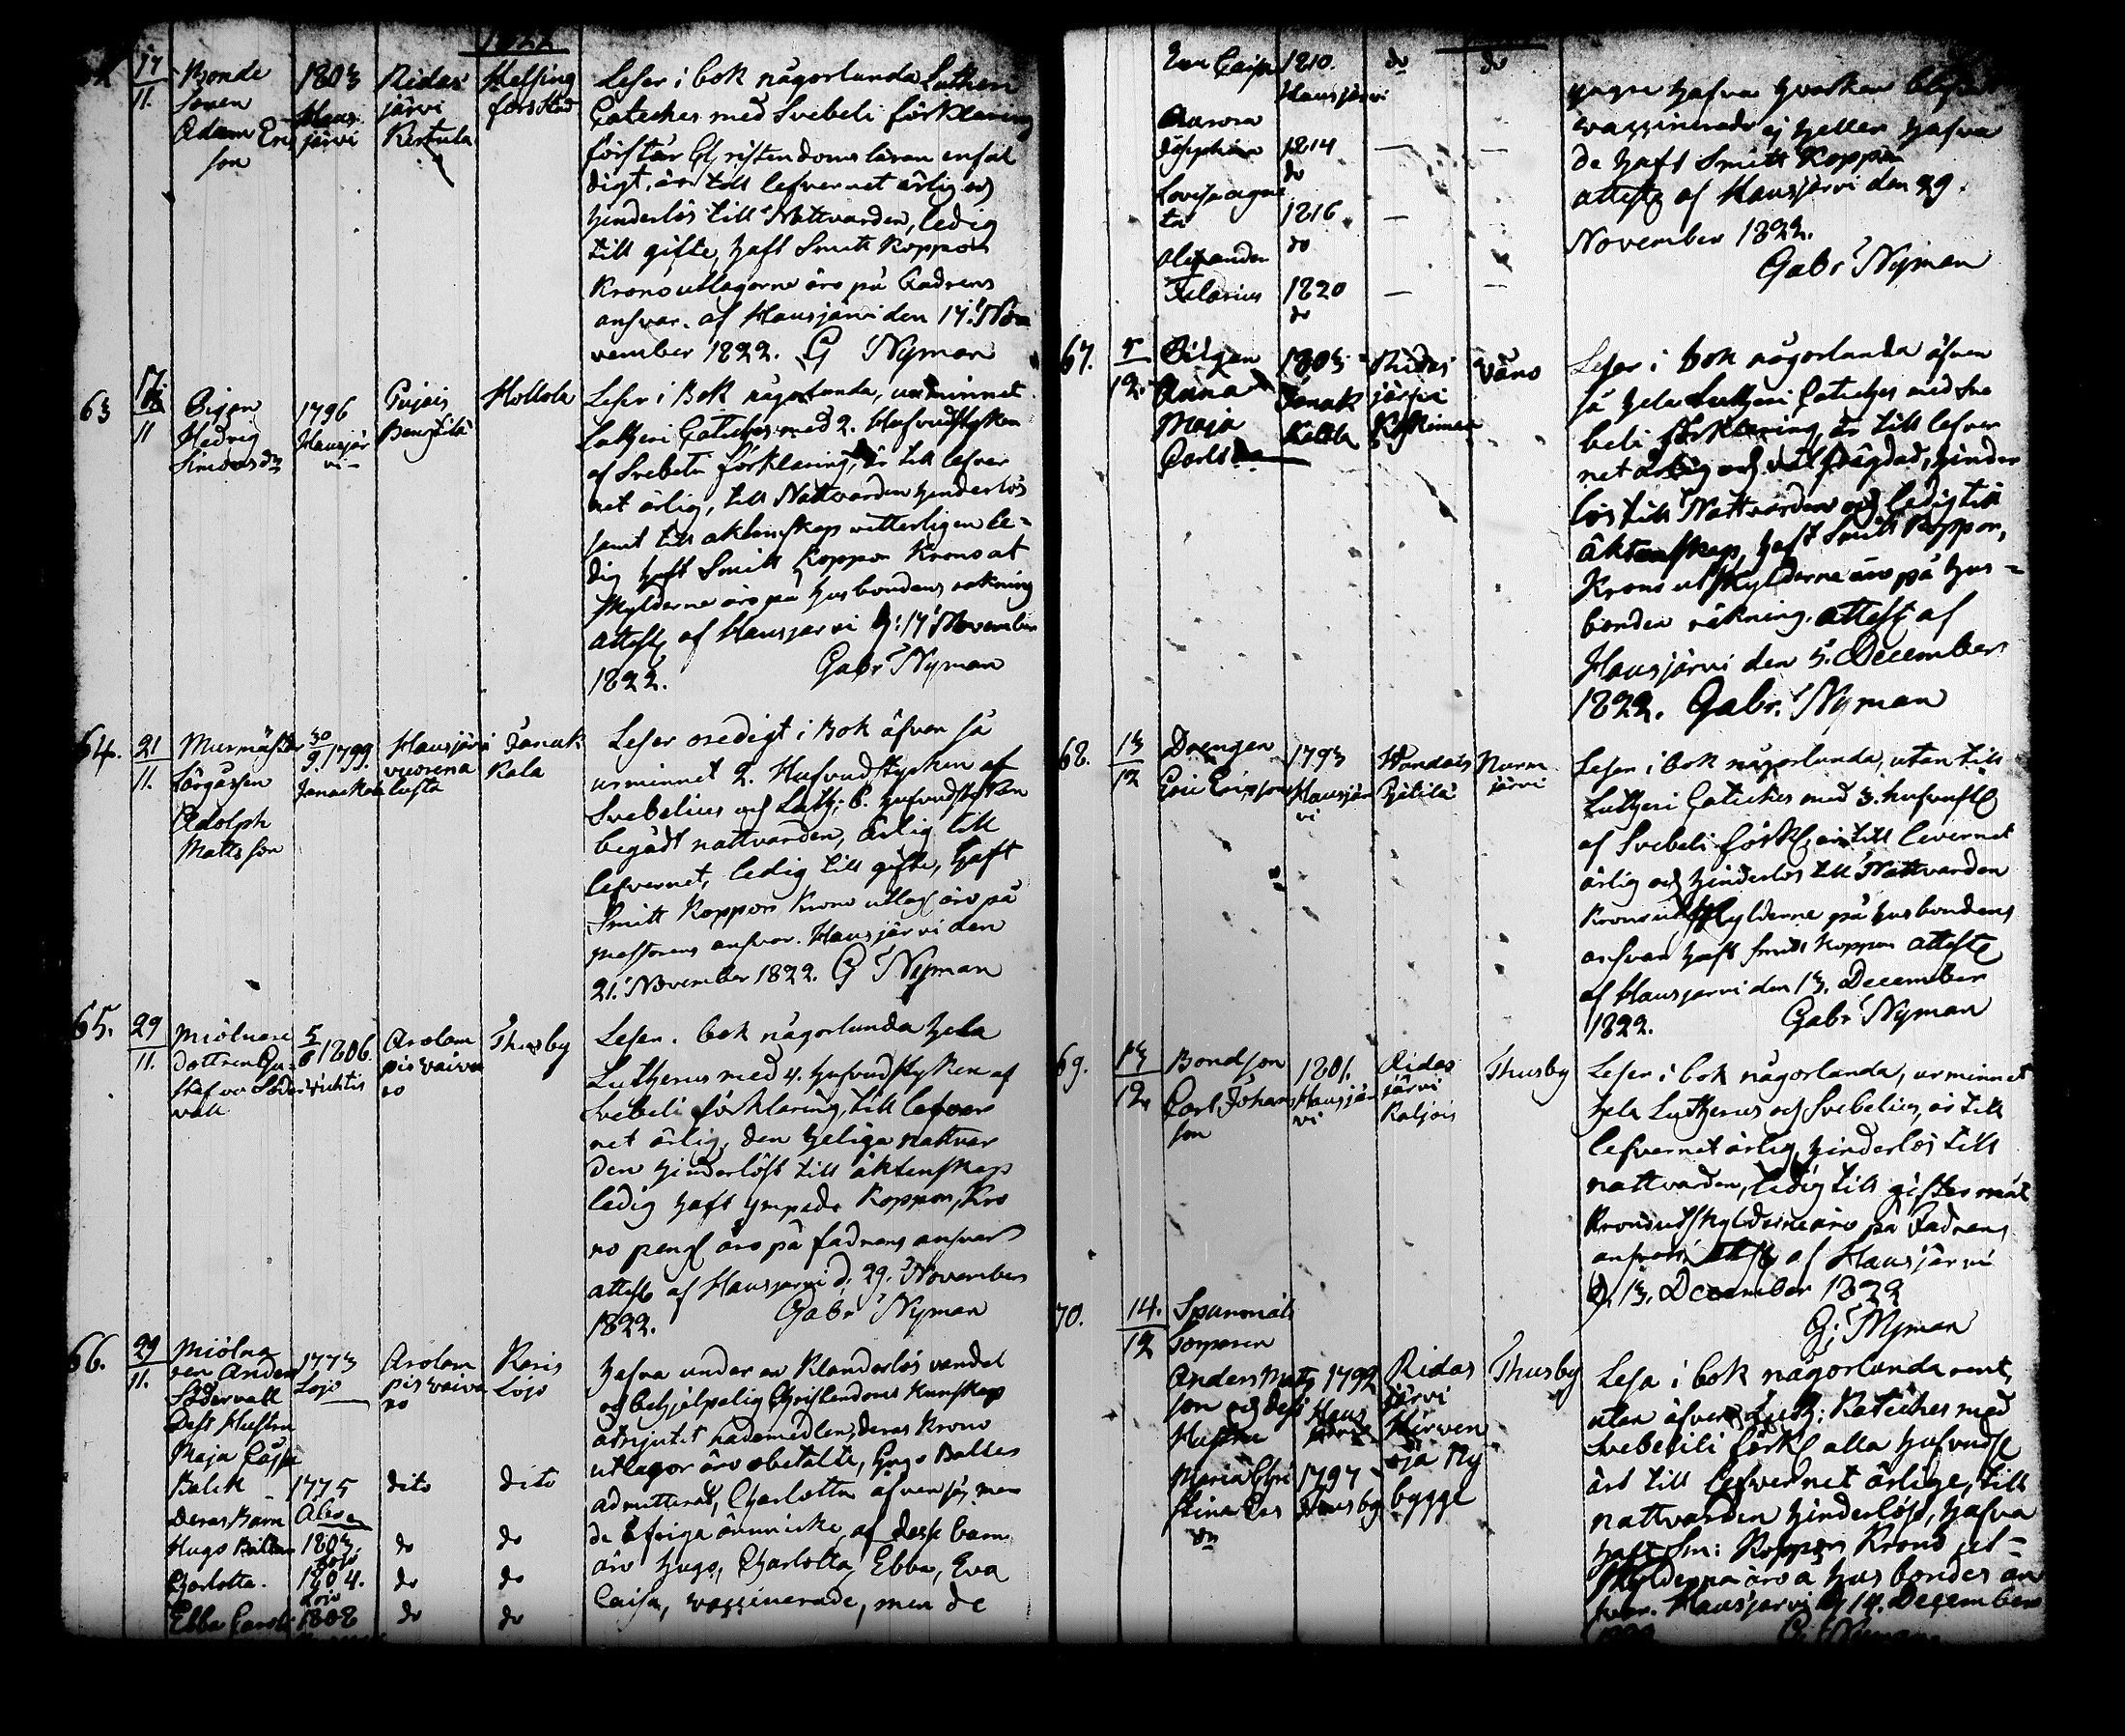 1822
17/11. Bonde
Sonen
Adam Erics
son
1803
Haus
järvi
Ridas
järvi
Kertula
Helsing
fors Stad
Leser i bok någorlunda Lutheri
Cateches med Svebeli förklaring
förstår Christendoms läran enfal
digt, är till lefvernet ärlig och
hinderlös till Nattvarden, ledig
till gifte, haft Smitt Koppor
Krono utlagorne äro på Fadrens
ansvar. af Hausjärvi den 17. No
vember 1822. G Nyman
63
11
Pigan
Hedvig
Simonsdr
1796
Hausjär
vi
Bengtilä
Hollola
Leser i Bok någorlunda, urminnet
Lutheri Cateches med 2. Hufvudstycken
af Svebeli förklaring, är till lefver
net ärlig, till Nattvarden hinderlös
samt till äktenskap vitterligen le=
dig haft Smitt Koppor Krono ut
skylderne äro på husbondens räkning
attest af Hausjarvi d: 17 November
1822. Gabr Nyman
64. 21/11.
Murmäster
Lärgåssen
Adolph
Matts son
30/9. 1799.
Janackala
Hausjärvi
Janak
Kala
Leser oredigt i Bok äfven så
urminnet 2. Hufvudstycken af
Svebelius och Luth: C. hufvudstycken
begådt nattvarden, ärlig till
lefvernet, ledig till gifte, haft
Smitt Koppor Krono utlag äro på
mästarens ansvar. Hausjärvi den
21. November 1822. G Nyman
65. 29/11.
Miölnare
dottren Gu
staf va Söder
vall
5/6 1806.
Vichtis
Arolam
pis vaiva
ro
Thusby
Leser i bok någorlunda hela
Lutherus med 4. hufvudstycken af
Svebeli förklaring, till lefver
net ärlig, den heliga nattvar
den hinderlöst till äktenskap
ledig haft ympade Koppor, Kro
no peng äro på fadrens ansvar
attest af Hausjarvi d. 29. November
1822. Gabr Nyman
66. 29/11.
Miölna
ren Anders
Södervall
Dess Hustru
Maja Cajsa
Balck
Deras Barn
Hugo Baltzar
Charlotta.
Ebba Carol
1773
Lojo
1775
Åbo
1803.
Lojo
1804.
Lojo
1808
Arolam
pis vaiva
ro
dito
do
do
do
Karis
Lojo
dito
do
do
do
Hafva under en Klanderlös vandel
och behjälpelig Christendoms Kunskap
åtnjutit nådemedlen, deras Krono
utlagor äro obetalte, Hugo Baltes
admitterad, Charlotta äfven så, men
de öfriga ännu icke, af desse barn
äro Hugo, Charlotta, Ebba, Eva
Caisa, vaccinerade, men de
Eva Caisa 1810. do do
Hausjärvi
Aurora
Josephina 1814 — —
do
Lovisa Agne
ta 1816 — —
do
Alexander
Hilarius 1820 — —
do
yngre hafva hvarken blifvit
vaccinerade ej heller hafva
de haft Smitt Koppor
attest af Hausjärvi den 29.
November 1822.
Gabr Nyman
67. 5/12.
Pigan
Anna
Maja
Carls
1803
Janak
Kalla
Ridas
järvi
Våno
Leser i bok någorlunda äfven
så hela Lutheri Cateches med Sve
beli förklaring, är till lefver
net ärlig och väl frägdad, hinder
lös till Nattvarden och ledig till
äktenskap, haft Smitt Koppor,
Krono utskylderne äro på hus=
bonden räkning. attest af
Hausjärvi den 5. December
1822. Gabr. Nyman
68. 13/12
Drengen
Eric Ericsson
1793
Hausjär
vi
Hätilä
Nurm
järvi
Leser i bok någorlunda, utan till
Lutheri Cateches med 3. hufvudst
af Svebeli förkl, är till levernet
ärlig och hinderlös till Nattvarden
Krono utskylderne på husbondens
ansvar haft Smitt Koppor attest
af Hausjarvi den 13. December
1822. Gabr Nyman
69. 13/12.
Bondson
Carl Johans
son
1801.
Hausjär
vi
Ridas
järvi
Kaljois
Thusby
Leser i bok någorlunda, urminnet
hela Lutherus och Svebelius, är till
lefvernet ärlig, hinderlös till
nattvarden, ledig till giftermål
Krono utskylderne äro på Fadrens
ansvar. attest af Hausjärvi
d. 13. December 1822
G: Nyman
70. 14./12
Torparen
Anders Mats
son och dess
Hustru
Maria Chri
stina
dr
1792
Haus
järvi
1797
Thusby
Ridas
järvi
Hirven
oja Ny
bygge
Thusby
Lesa i bok någorlunda rent,
utan äfven Luth: Kateches med
Svebelili förkl alla hufvudst
äro till lefvernet ärlige, till
nattvarden hinderlöse, hafva
haft Sm: Koppor Krono ut=
skylderna äro å husbondes an
svar. Hausjarvi d 14. December
1822 G Nyman